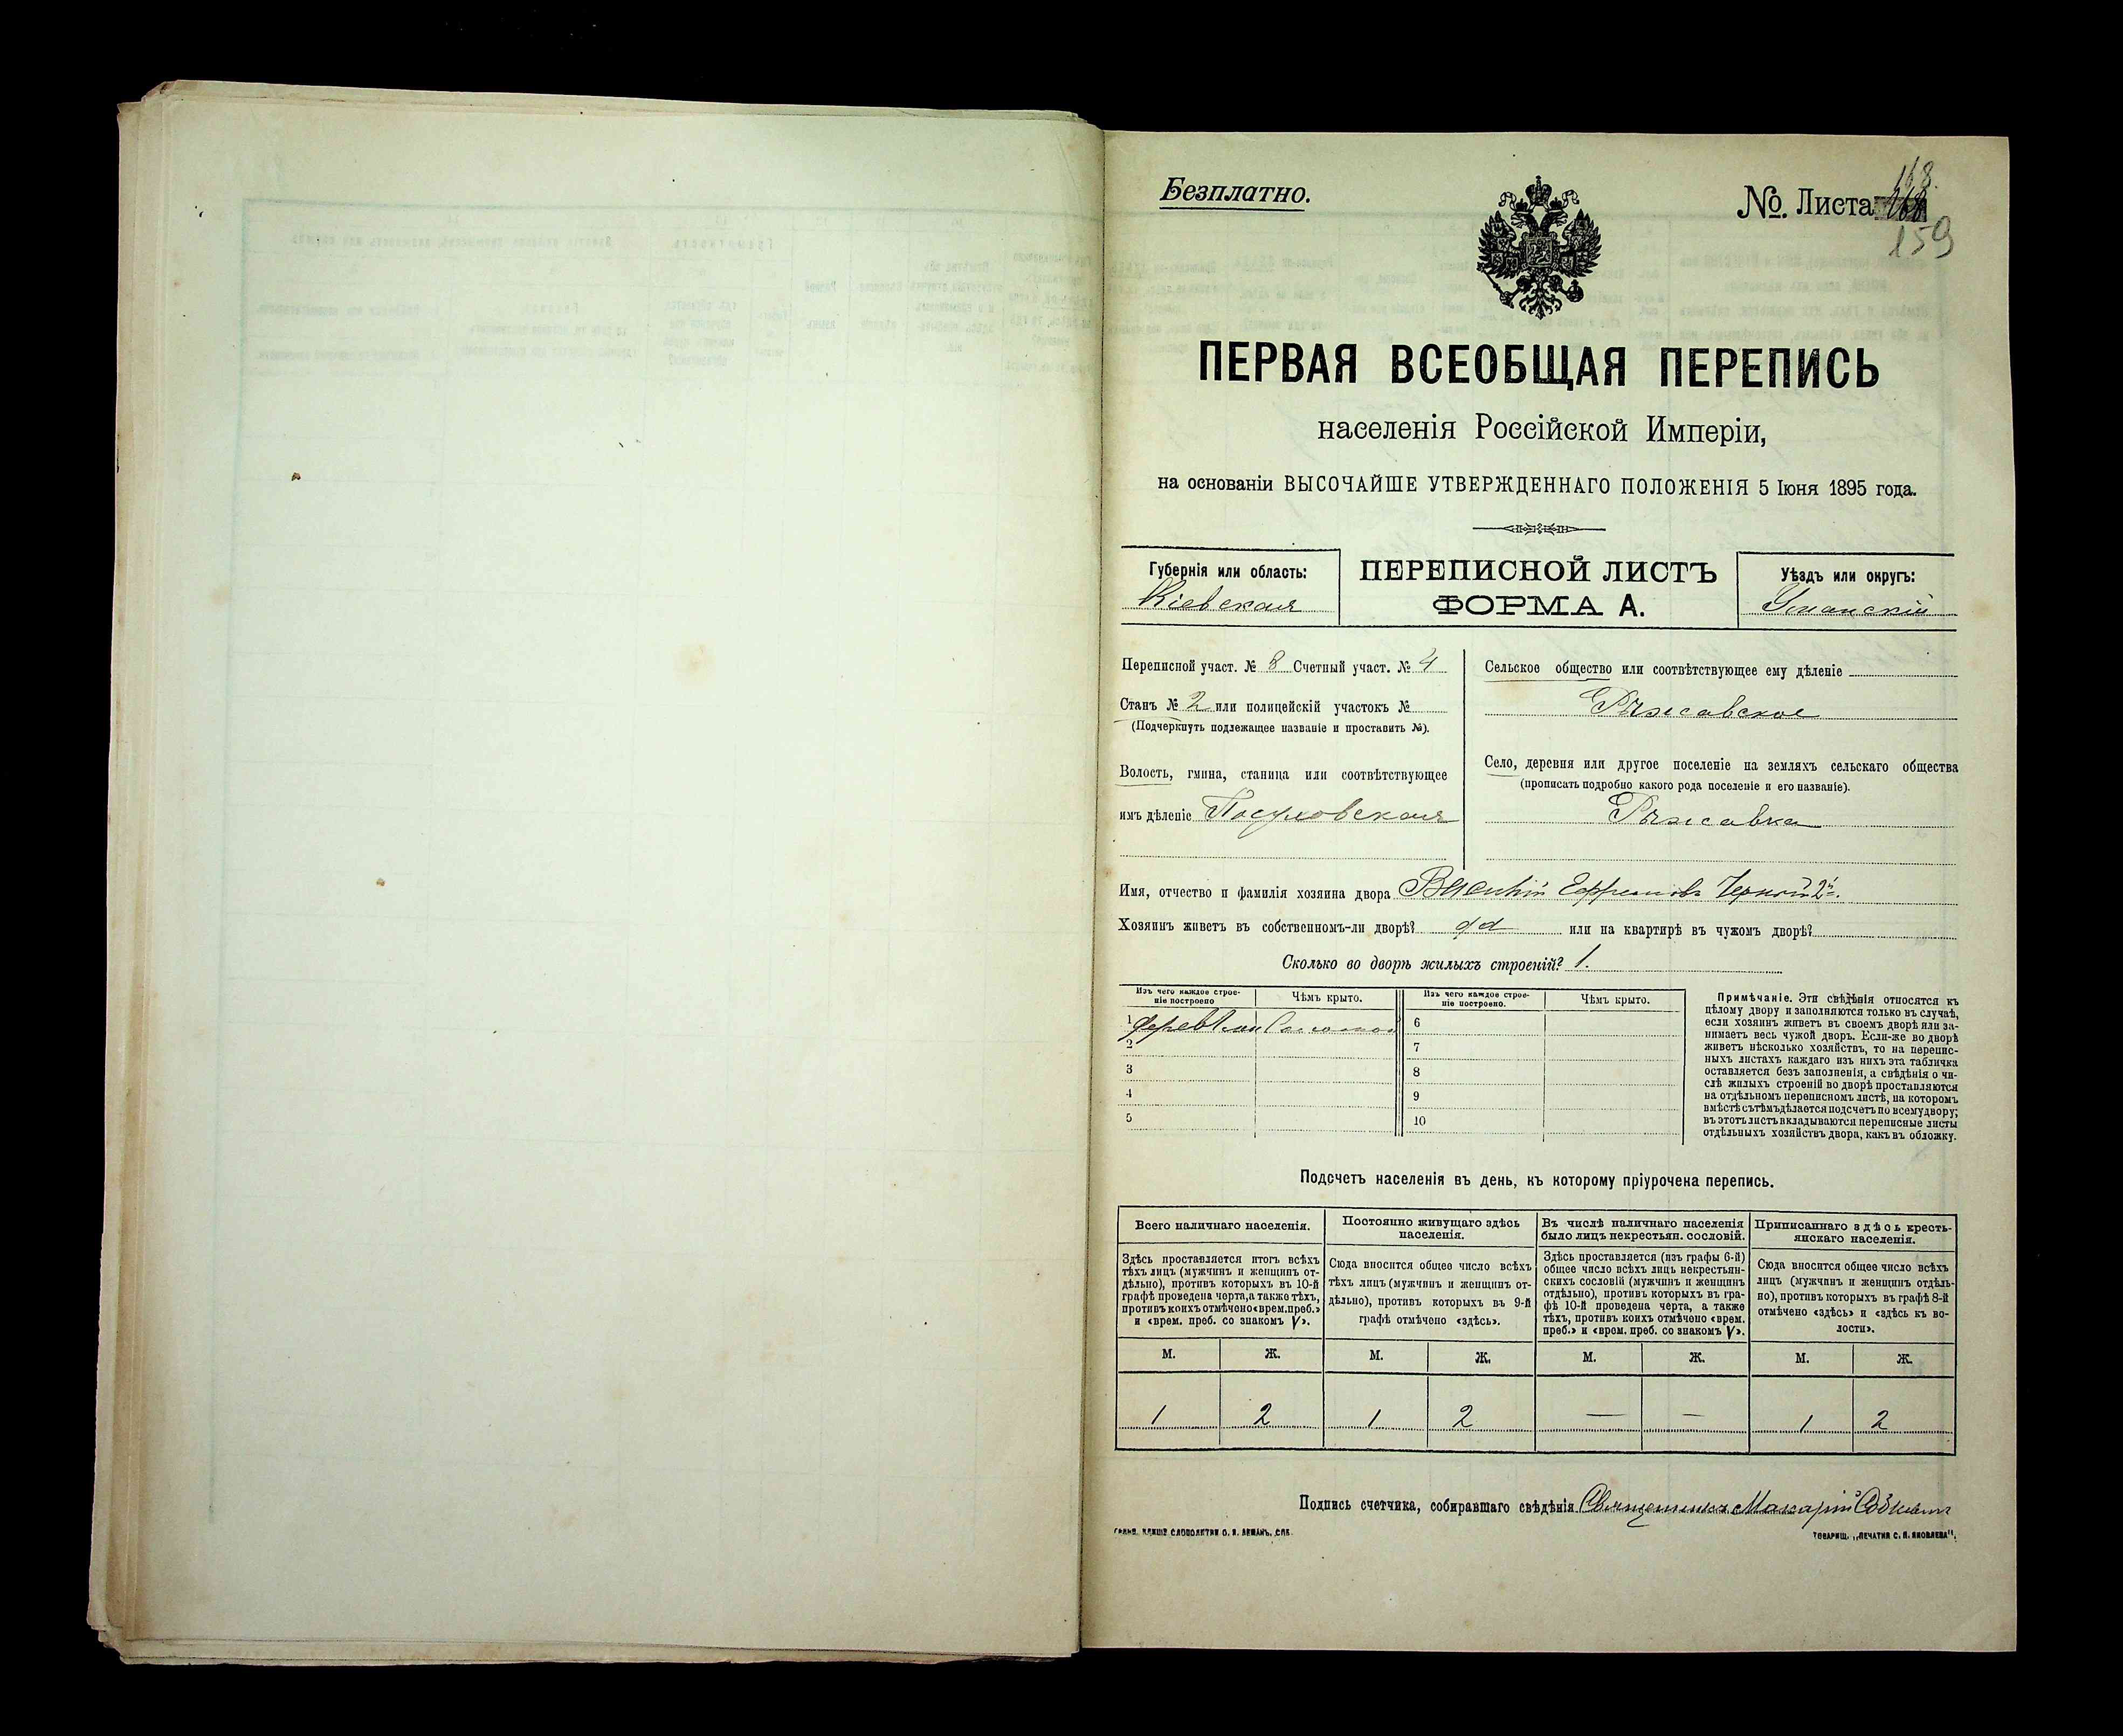 Безплатно.
168.
No. Листа 168
159
ПЕРВАЯ ВСЕОБЩАЯ ПЕРЕПИСЬ
населенія Россійской Имперіи,
на основаніи ВЫСОЧАЙШЕ УТВЕРЖДЕННАГО ПОЛОЖЕНІЯ 5 Іюня 1895 года.
Губернія или область:
Кіевская
ПЕРЕПИСНОЙ ЛИСТЪ
ФОРМА А.
Уѣздъ или округъ:
Уманскій
Переписной участ. № 8 Счетный участ. № 4
Станъ № 2 или полицейскій участокъ №
(Подчеркнуть подлежащее названіе и проставить №).
Волость, гмина, станица или соотвѣтствующее
имъ дѣленіе
Сельское общество или соотвѣтствующее ему дѣленіе
Ряжсавское
Село, деревня или другое поселеніе на земляхъ сельскаго общества
(прописать подробно какого рода поселеніе и его названіе).
Ряжсавка
Имя, отчество и фамилія хозяина двора Василій Ефремовъ Черный 2й.
Хозяинъ живетъ въ собственномъ-ли дворѣ? да или на квартирѣ въ чужомъ дворѣ?
Сколько во дворѣ жилыхъ строеній? 1.
Изъ чего каждое строе-
ніе построено
Чѣмъ крыто.
1
2
3
4
5
Изъ чего каждое строе-
ніе построено.
Чѣмъ крыто.
6
7
8
9
10
Примѣчаніе. Эти свѣдѣнія относятся къ
цѣлому двору и заполняются только въ случаѣ,
если хозяинъ живетъ въ своемъ дворѣ или за-
нимаетъ весь чужой дворъ. Если-же во дворѣ
живетъ нѣсколько хозяйствъ, то на перепис-
ныхъ листахъ каждаго изъ нихъ эта табличка
оставляется безъ заполненія, а свѣдѣнія о чи-
слѣ жилыхъ строеній во дворѣ проставляются
на отдѣльномъ переписномъ листѣ, на которомъ
вмѣстѣ съ тѣмъ дѣлается подсчетъ по всему двору;
въ этотъ листъ вкладываются переписные листы
отдѣльныхъ хозяйствъ двора, какъ въ обложку.
Подсчетъ населенія въ день, къ которому пріурочена перепись.
Всего наличнаго населенія.
Здѣсь проставляется итогъ всѣхъ
тѣхъ лицъ (мужчинъ и женщинъ от-
дѣльно), противъ которыхъ въ 10-й
графѣ проведена черта, а также тѣхъ,
противъ коихъ отмѣчено «врем. преб.»
и «врем. преб. со знакомъ V».
М. Ж.
1 2
Постоянно живущаго здѣсь
населенія.
Сюда вносится общее число всѣхъ
тѣхъ лицъ (мужчинъ и женщинъ от-
дѣльно), противъ которыхъ въ 9-й
графѣ отмѣчено «здѣсь».
М. Ж.
1 2
Въ числѣ наличнаго населенія
было лицъ некрестьян. сословій.
Здѣсь проставляется (изъ графы 6-й)
общее число всѣхъ лицъ некрестьян-
скихъ сословій (мужчинъ и женщинъ
отдѣльно), противъ которыхъ въ гра-
фѣ 10-й проведена черта, а также
тѣхъ, противъ коихъ отмѣчено «врем.
преб.» и «врем. преб. со знакомъ V».
М. Ж.
— —
Приписаннаго здѣсь кресть-
янскаго населенія.
Сюда вносится общее число всѣхъ
лицъ (мужчинъ и женщинъ отдѣль-
но), противъ которыхъ въ графѣ 8-й
отмѣчено «здѣсь» и «здѣсь къ во-
лости».
М. Ж.
1 2
Подпись счетчика, собиравшаго свѣдѣнія Священникъ Макарій
ТОВАРИЩ. „ПЕЧАТНЯ С. П. ЯКОВЛЕВА".